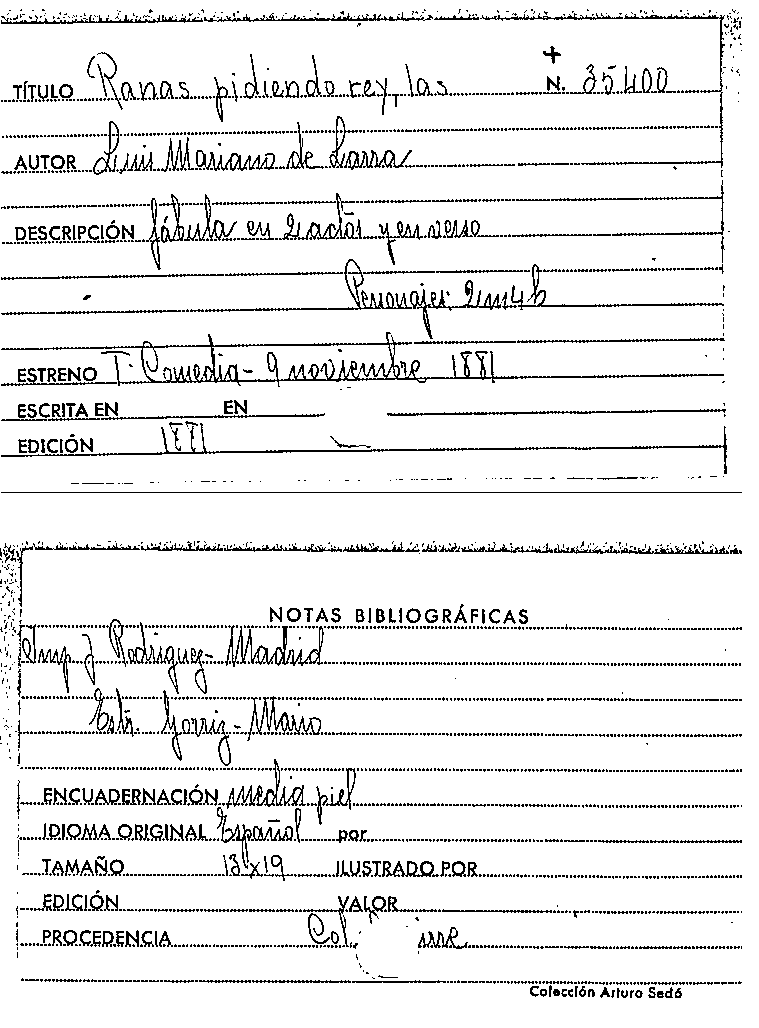 TÍTULO Ranas pidiendo rey, las N. 35400
AUTOR Luis Mariano de Larra
DESCRIPCIÓN fábula en 2 actos y en verso
Personajes: 2 m 4 h
ESTRENO T. Comedia - 9 noviembre 1881
ESCRITA EN EN
EDICIÓN 1881
NOTAS BIBLIOGRÁFICAS
Imp J Rodriguez - Madrid
Estr. Gorriz - Mario
ENCUADERNACIÓN media piel
IDIOMA ORIGINAL Español por
TAMAÑO 13x19 ILUSTRADO POR
EDICIÓN VALOR
PROCEDENCIA Col.
Colección Arturo Sedó